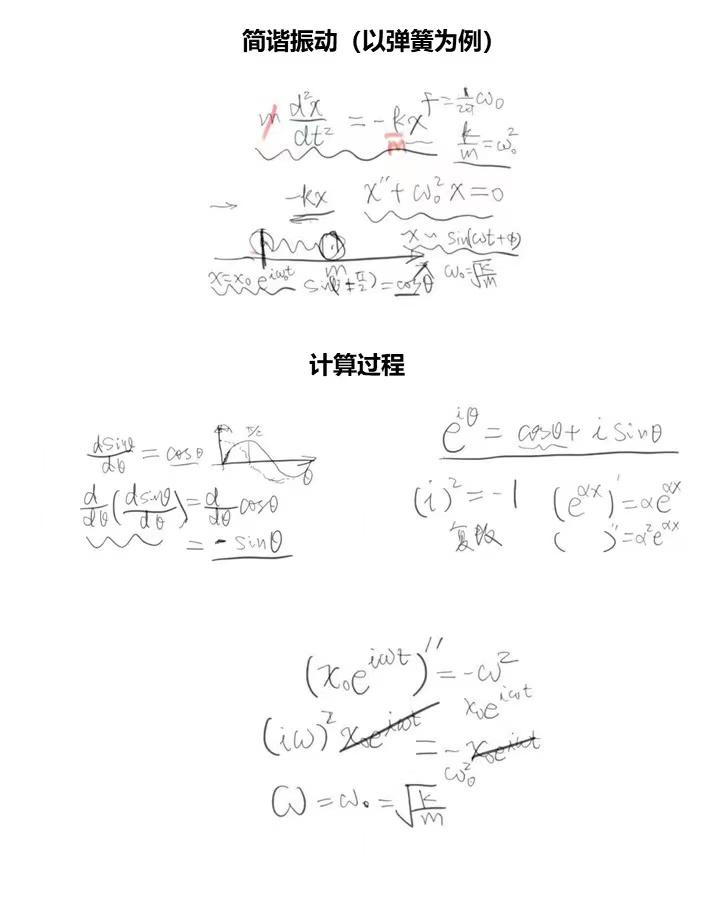 简谐振动（以弹簧为例）
m d²x/dt² = -kx/m f = 1/2π ω₀
k/m = ω₀²
→ -kx x'' + ω₀² x = 0
x ~ sin(ωt+φ)
m
x = x₀ e^{iω₀t} sin(θ+π/2) = cosθ ω₀ = √(k/m)
计算过程
e^{iθ} = cosθ + i sinθ
dsinθ/dθ = cosθ π/2 θ
d/dθ (dsinθ/dθ) = d/dθ cosθ
= -sinθ
(i)² = -1 (e^{αx})' = αe^{αx}
复数 ( )'' = α²e^{αx}
(x₀e^{iωt})'' = -ω² x₀e^{iωt}
(iω)² x₀e^{iωt} = -ω₀² x₀e^{iωt}
ω = ω₀ = √(k/m)